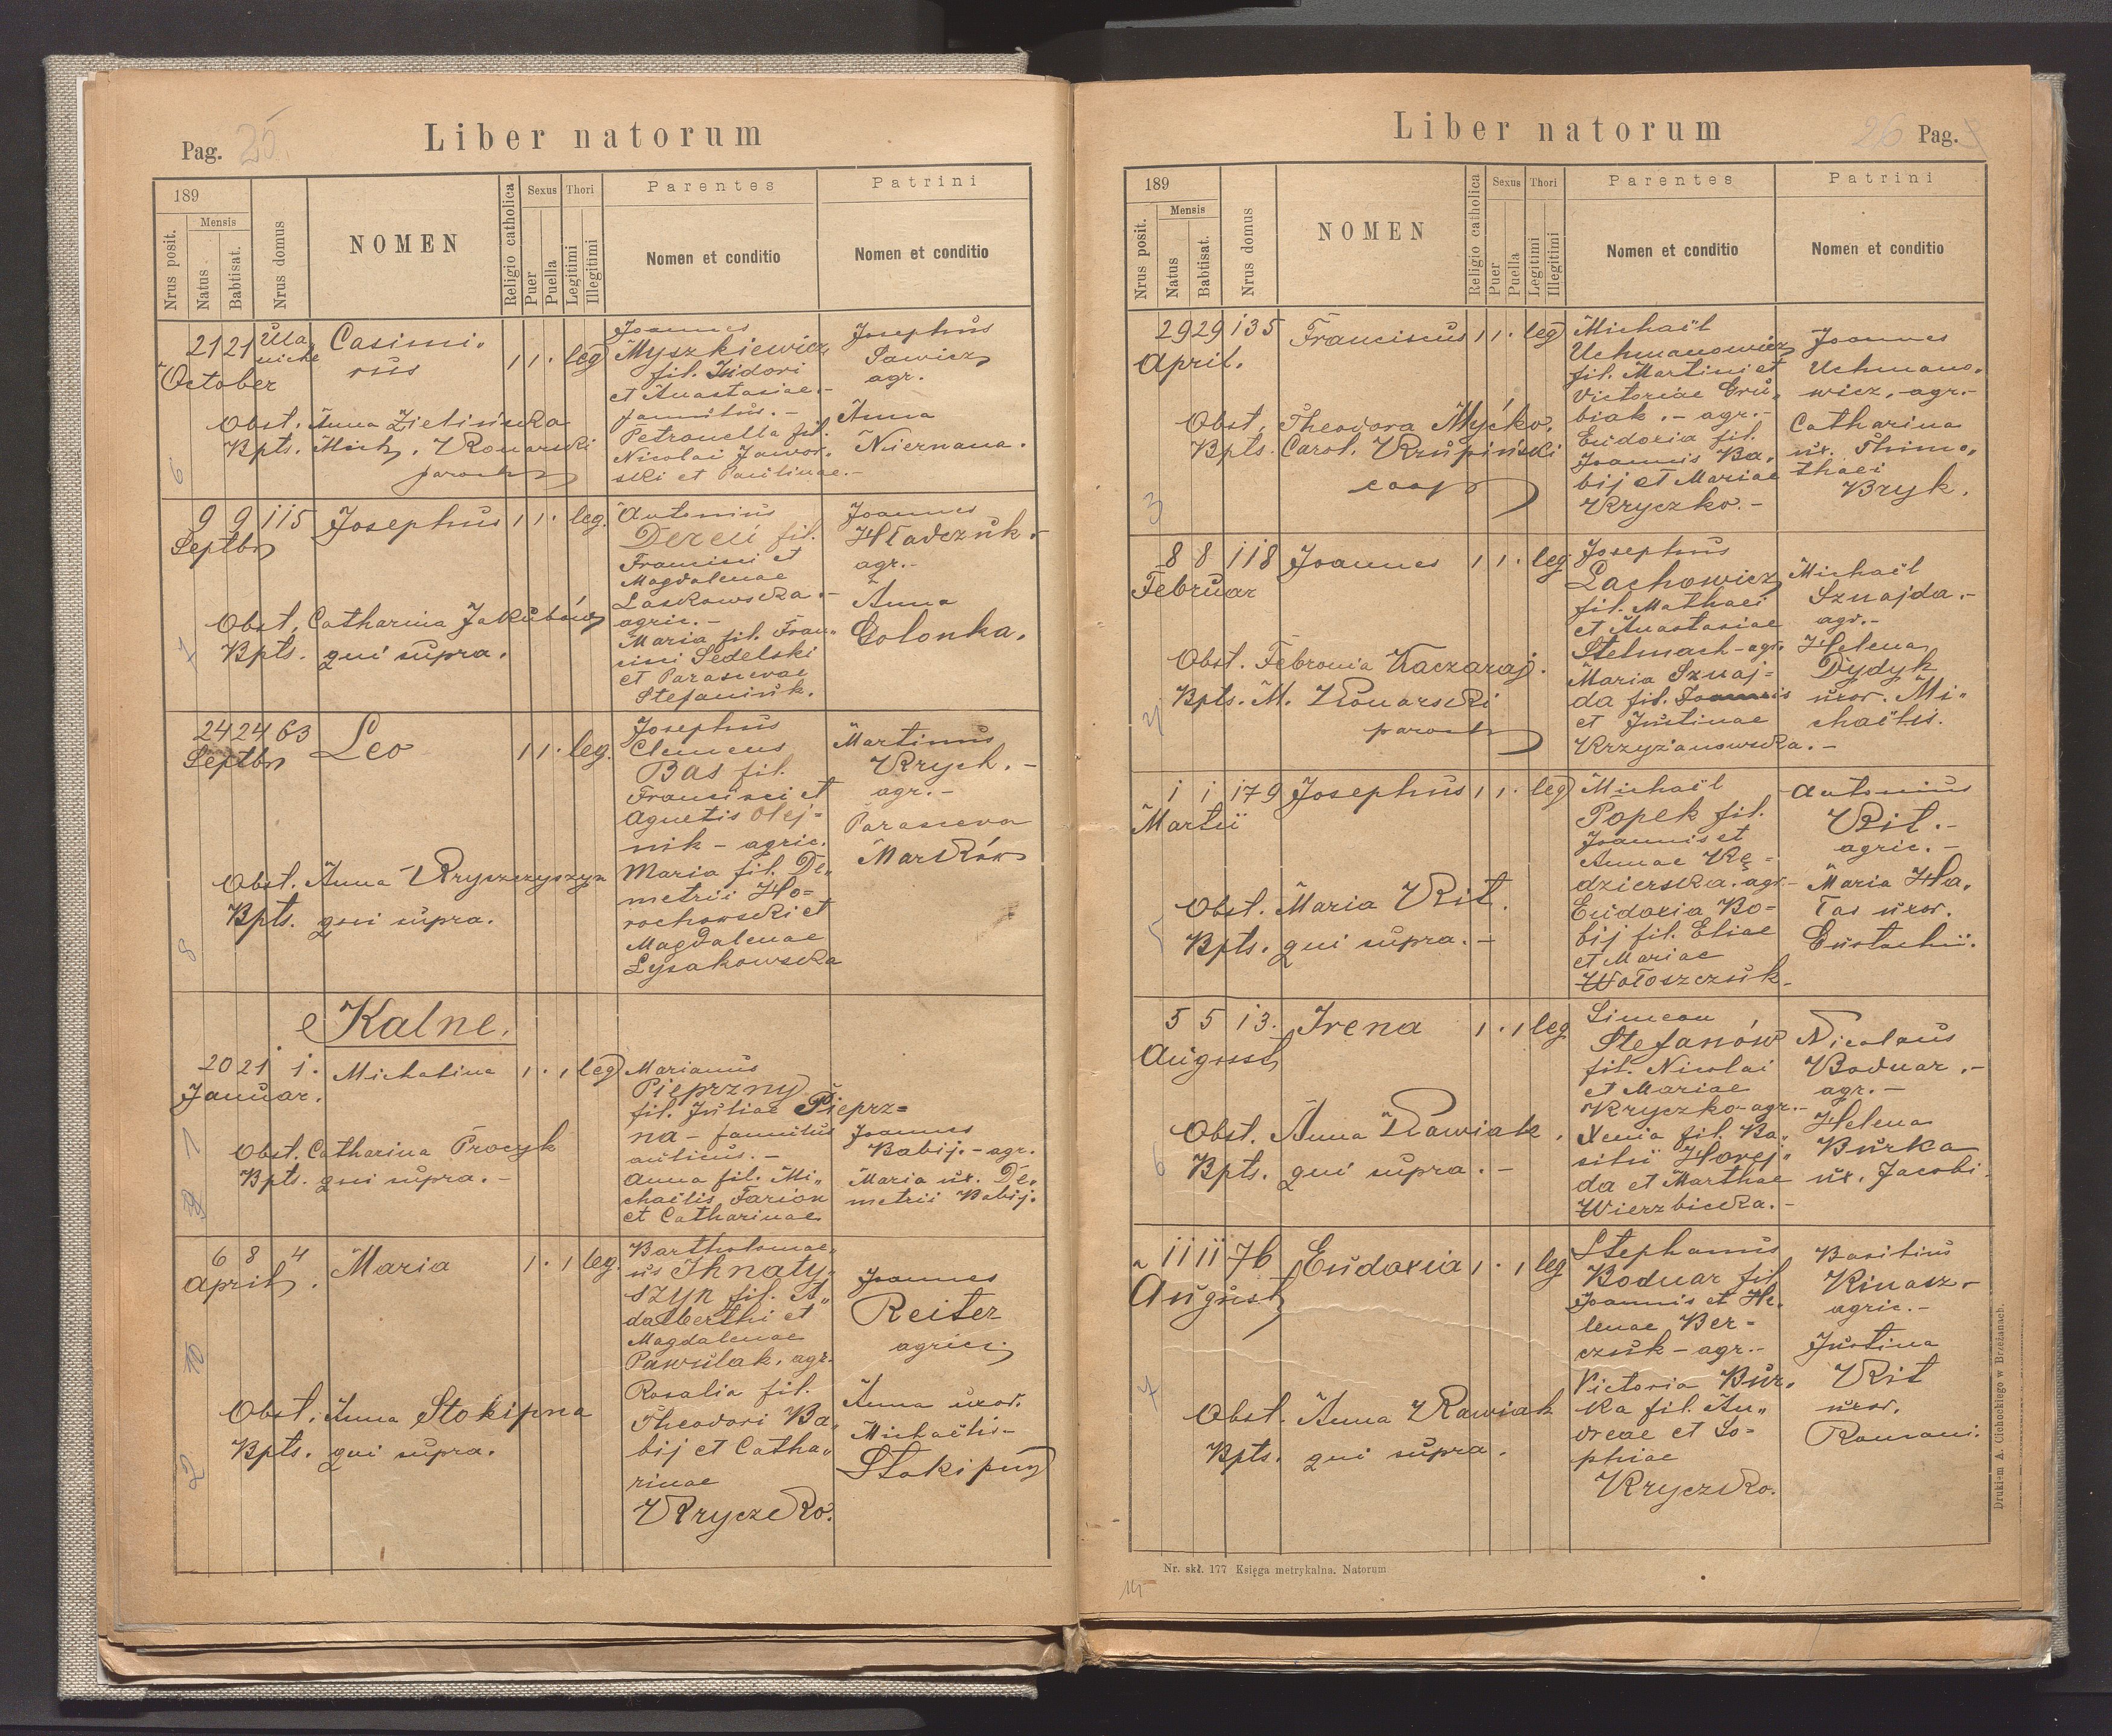 Pag. 25.
Liber natorum
189
Mensis
Nrus posit.
Natus
Babtisat.
Nrus domus
NOMEN
Religio catholica
Sexus
Puer
Puella
Thori
Legitimi
Illegitimi
Parentes
Nomen et conditio
Patrini
Nomen et conditio
21 21 Casimi- 1 1 · leg Joannes Josephus
October rus Myszkiewicz Pawicz
fil. Isidori agr.
et Anastasiae.-
Obst. Anna Zielińska famulus.- Anna
Bpts. Mich. Konarski Petronella fil. Niernana.
paroch Nicolai Jawor-
6 ski et Paulinae.-
9 9 115 Josephus 1 1 · leg. Antonius Joannes
Septbr Dereń fil. Hładczuk.-
Francisci et agr.-
Magdalenae
Laskowska.- Anna
Obst. Catharina Jakubów agric.- Golonka.
Bpts. qui supra. Maria fil. Fran-
7 cisci Sedelski
et Parascevae
Stefaniuk.
24 24 63 Leo 1 1 · leg. Josephus Martinus
Septbr Clemens Krych.-
Bas fil. agr.-
Francisci et Parasceva
Agnetis Olej= Marków
nik - agric.
Obst. Anna Kryszczyszyn Maria fil. De-
Bpts. qui supra. metrii Ho=
rochowski et
8 Magdalenae
Łysakowska
Kalne.
20 21 1. Michalina 1 · 1 leg Marianus
Januar. Pieprzny
fil. Juliae Pieprz=
na - famulus Joannes
Obst. Catharina Procyk aulicus.- Babij.- agr.
Bpts. qui supra.- Anna fil. Mi- Maria ux. De-
1 chaëlis Farion metrii Babij.
et Catharinae
6 8 4 Maria 1 · 1 leg. Bartholomae-
April. us Ihnaty- Joannes
szyn fil. A- Reiter
dalberthi et agric.
Magdalenae
Pawulak. agr.
Rosalia fil. Anna uxor.
Obst. Anna Stokipna Theodori Ba- Michaëlis-
Bpts. qui supra. bij et Catha- Stokipny
2 rinae
Kryczko.
Liber natorum
26 Pag.
189
Mensis
Nrus posit.
Natus
Babtisat.
Nrus domus
NOMEN
Religio catholica
Sexus
Puer
Puella
Thori
Legitimi
Illegitimi
Parentes
Nomen et conditio
Patrini
Nomen et conditio
29 29 135 Franciscus 1 1 · leg Michaël Joannes
April. Uchmanowicz Uchmano-
fil. Martini et wicz.- agr.-
Victoriae Gru-
Obst. Theodora Myćko. biak.- agr.- Catharina
Bpts. Carol. Krupiński Eudoxia fil. ux. Thimo-
coop Joannis Ba- thaei
3 bij et Mariae Bryk.
Kryczko.-
8 8 118 Joannes 1 1 · leg Josephus
Februar Lachowicz Michaël
fil. Mathaei Sznajda.-
et Anastasiae agr.-
Obst. Febronia Kaczaraj. Stelmach - agr. Helena
Maria Sznaj= Dydyk
Bpts. M. Konarski da fil. Joannis uxor. Mi-
paroch et Justinae chaëlis.
4 Krzyżanowska.-
1 1 179 Josephus 1 1 · leg Michaël Antonius
Martii Popek fil. Kit.-
Joannis et agric.-
Annae Kę=
dzierska. agr.- Maria Ha-
Obst. Maria Kit. Eudoxia Bo= łas uxor.
Bpts. qui supra.- bij fil. Eliae Eustachii.
5 et Mariae
Wołoszczuk.
5 5 13. Irena 1 · 1 leg Simeon
August Stefanów Nicolaus
fil. Nicolai Boduar.-
et Mariae agr.-
Kryczko - agr.- Helena
Obst. Anna Kawiak. Xenia fil. Ba- Burka
Bpts. qui supra.- silii Horej- ux. Jacobi.
6 da et Marthae
Wierzbicka.-
11 11 76 Eudoxia 1 · 1 leg Stephanus Basilius
August Boduar fil. Kinasz-
Joannis et He- agric.-
lenae Ber=
czuk - agr.- Justina
Obst. Anna Kawiak Victoria Bur- Kit
Bpts. qui supra. ka fil. An- uxor.
7 dreae et So= Romani.
phiae
Kryczko.
Nr. skł. 177 Księga metrykalna. Natorum
Drukiem A. Cichockiego w Brzeżanach.